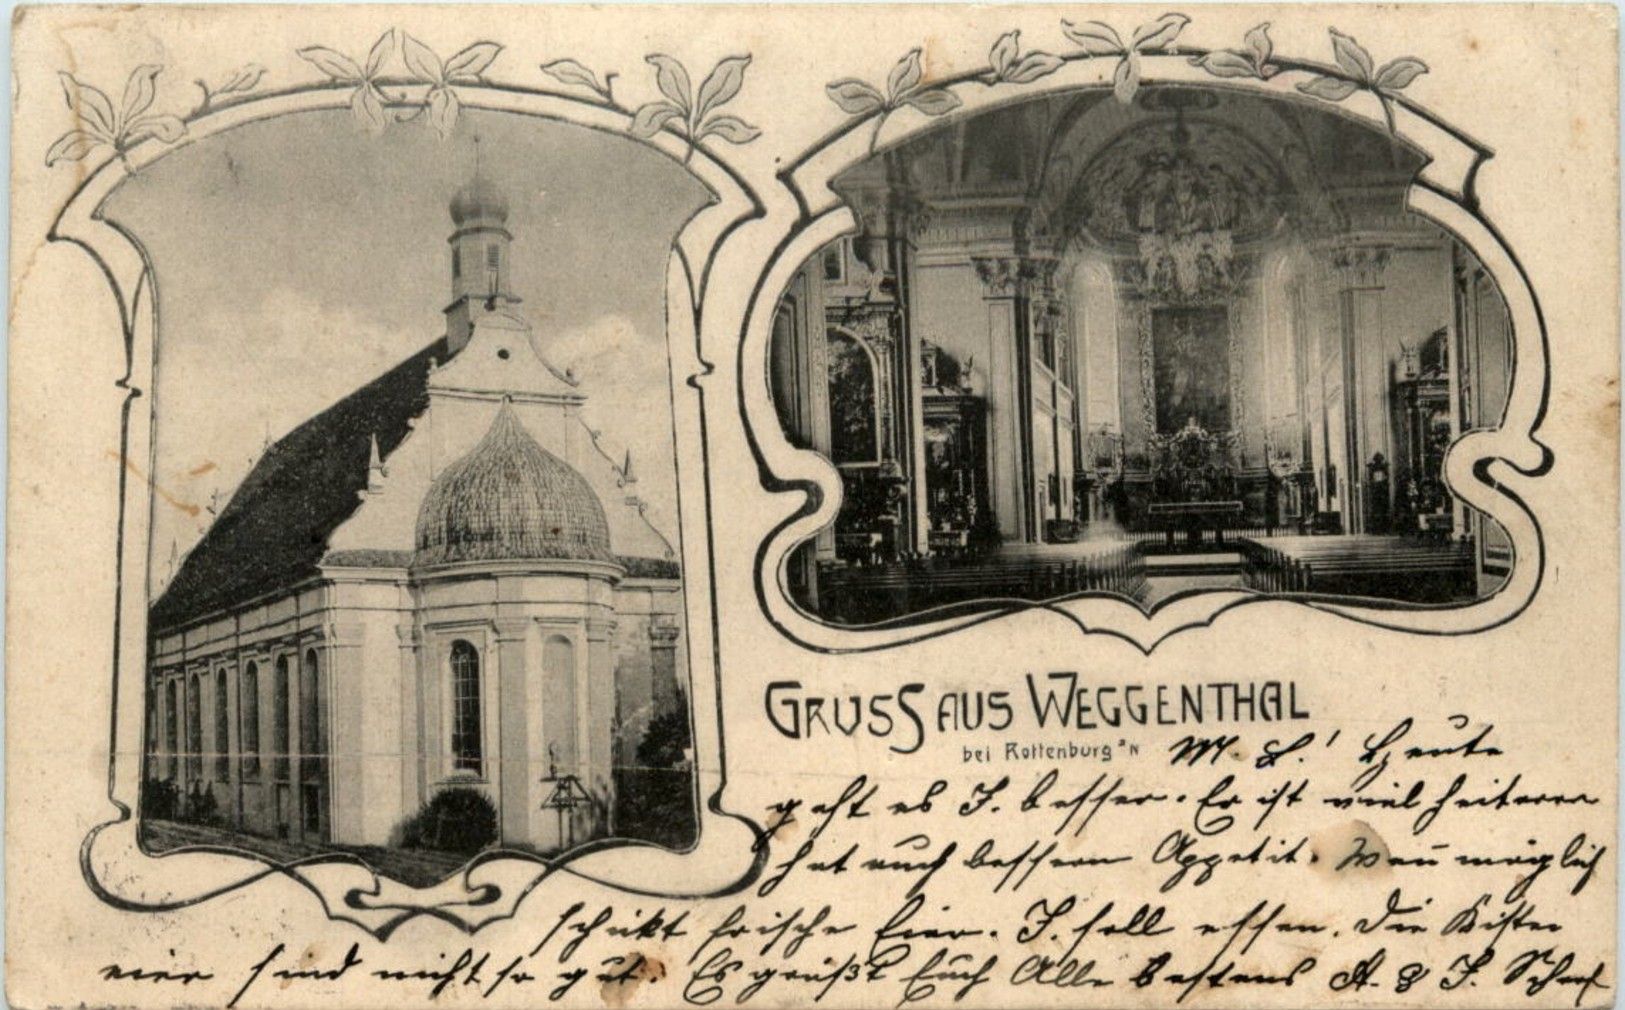 GRUSS AUS WEGGENTHAL
bei Rottenburg a/N
M. L.! Heute
geht es J. besser. Er ist viel heiterer
hat auch bessern Appetit. Wenn möglich
schickt frische Eier. J. soll essen. Die Kisten
eier sind nicht so gut. Es grüßt Euch Alle bestens A. & J.